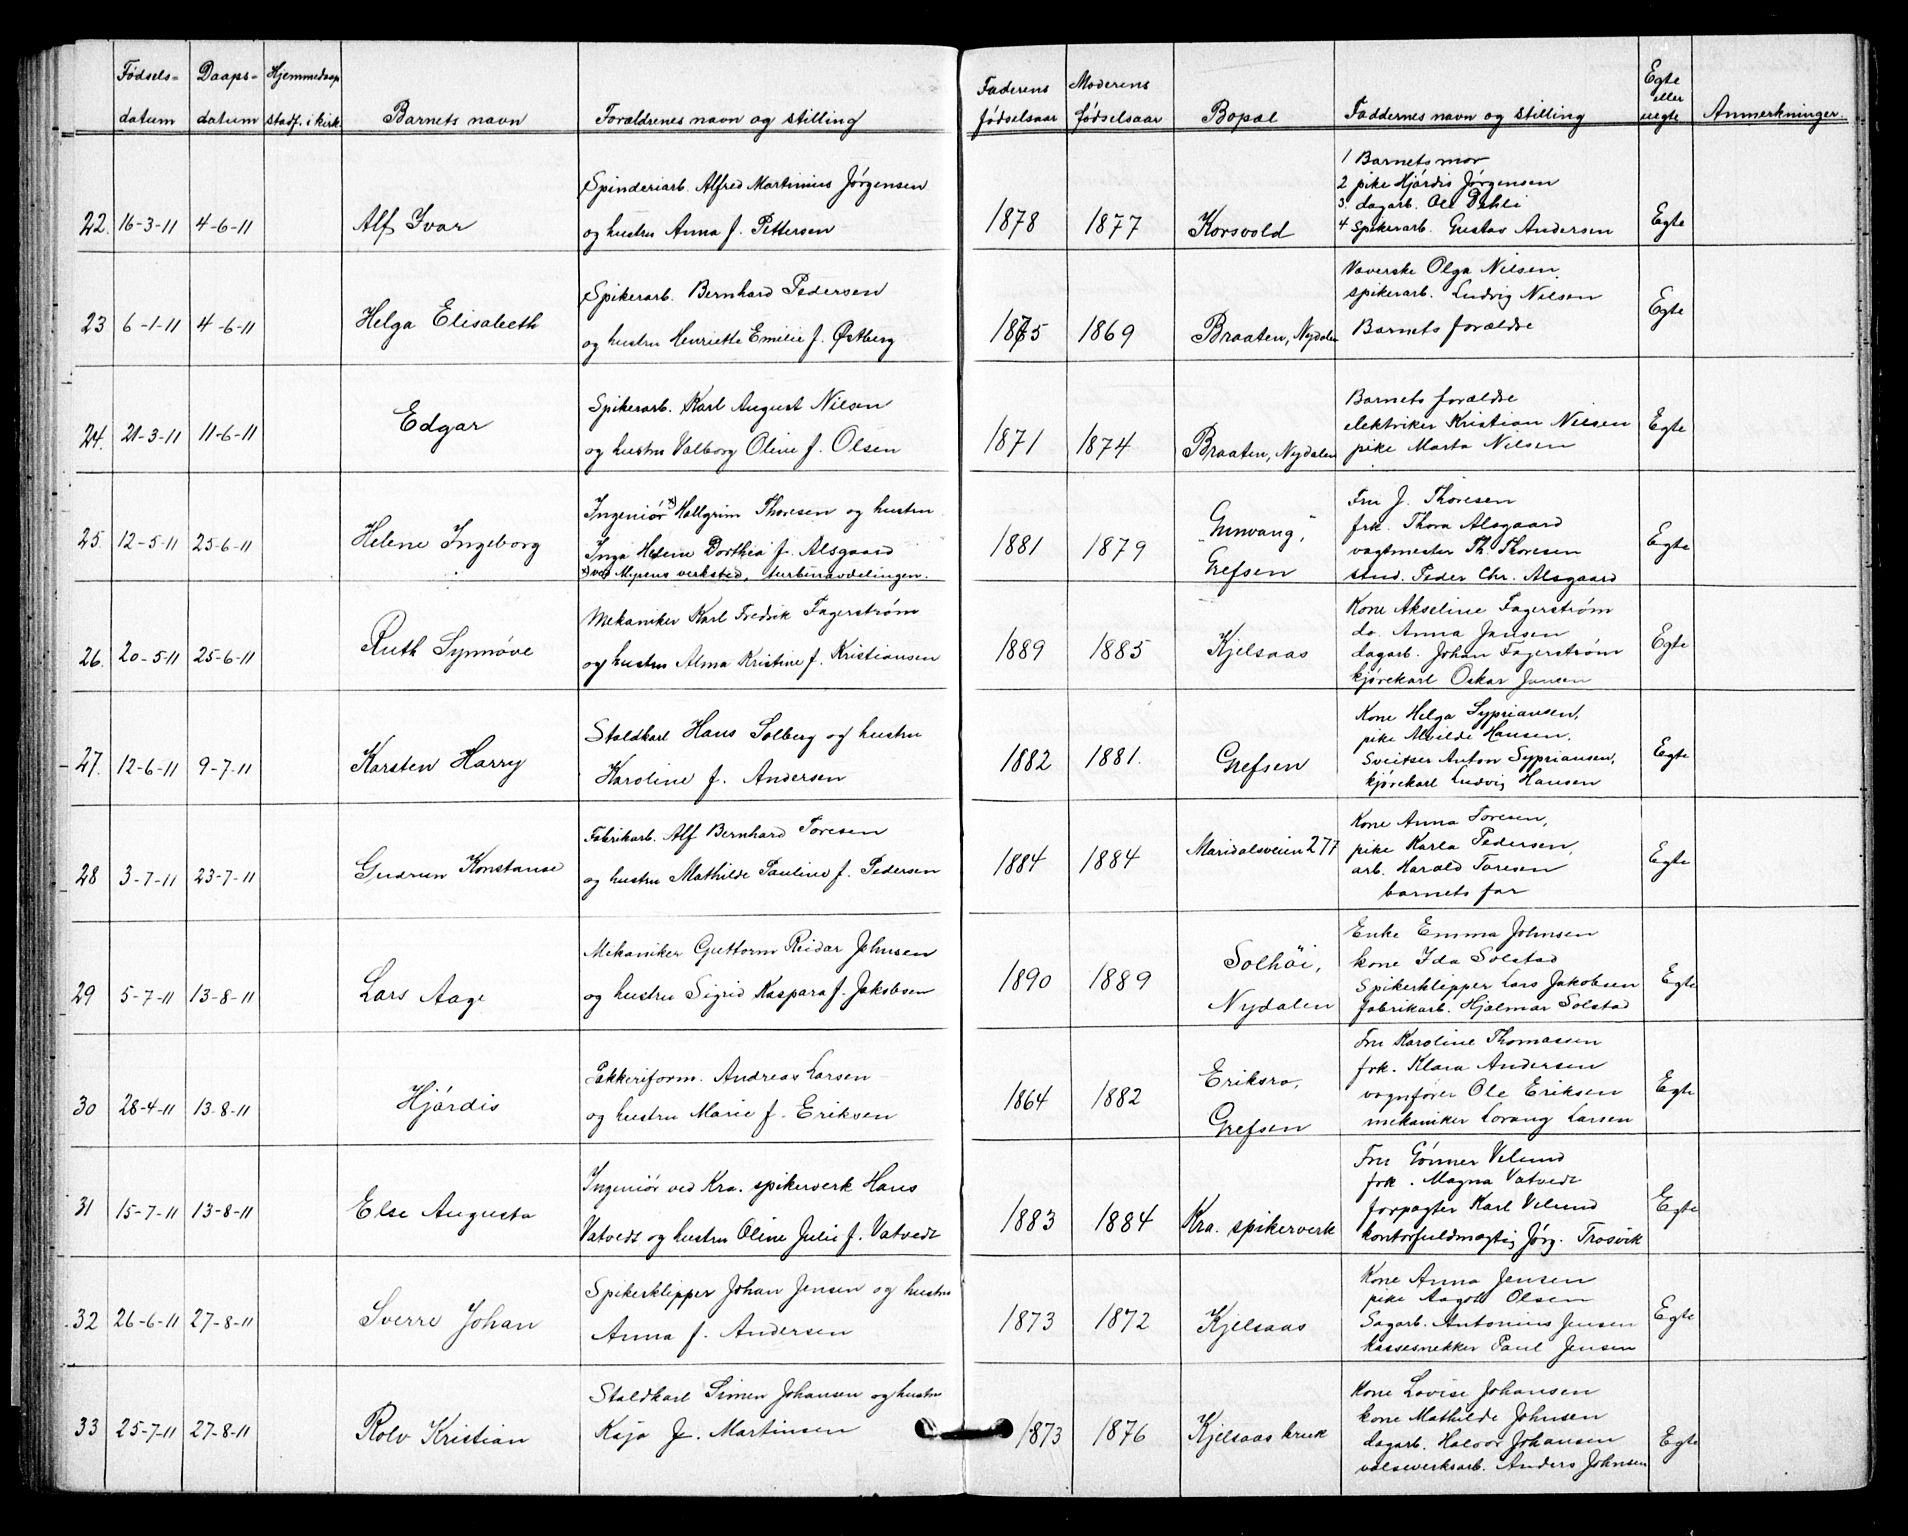 Fødsels-
datum
Daaps-
datum
Hjemmedaap
stadf. i kirk.
Barnets navn
Forældrenes navn og stilling
Faderens
fødselsaar
Moderens
fødselsaar
Bopæl
Faddernes navn og stilling
Egte
eller
uegte
Anmerkninger.
22. 16-3-11 4-6-11 Alf Ivar
Spinderiarb. Alfred Martinius Jörgensen
og hustru Anna f. Pettersen
1878 1877 Korsvold
1 Barnets mor
2 pike Hjördis Jörgensen
3. dagarb. Ole Dehli
4 Spikerarb. Gustav Andersen
Egte
23 6-1-11 4-6-11 Helga Elisabeth
Spikerarb. Bernhard Pedersen
og hustru Henriette Emilie f. Østberg
1875 1869 Braaten, Nydalen
Væverske Olga Nilsen,
spikerarb. Ludvig Nilsen
Barnets forældre
Egte
24. 21-3-11 11-6-11 Edgar
Spikerarb. Karl August Nilsen
og hustru Valborg Oline f. Olsen
1871 1874 Braaten, Nydalen
Barnets forældre
elektriker Kristian Nilsen
pike Marta Nilsen
Egte
25. 12-5-11 25-6-11 Helene Ingeborg
Ingeniör x) Hallgrim Thoresen og hustru
Inga Helene Dorthea f. Alsgaard
x) ved Myrens verksted, turbinavdelingen.
1881 1879
Grefsen
Fru J. Thoresen
frk. Thora Alsgaard
vagtmester Th. Thoresen
stud. Peder Chr. Alsgaard
Egte
26. 20-5-11 25-6-11 Ruth Synnöve
Mekaniker Karl Fredrik Fagerström
og hustru Alma Kristine f. Kristiansen
1889 1885 Kjelsaas
Kone Akseline Fagerström
do. Anna Jansen
dagarb. Johan Fagerström
kjörekarl Oskar Jansen
Egte
27. 12-6-11 9-7-11 Karsten Harry
Staldkarl Hans Solberg og hustru
Karoline f. Andersen
1882 1881. Grefsen
Kone Helga Sypriansen,
pike Alvilde Hansen,
Sveitser Anton Sypriansen,
kjörekarl Ludvig Hansen
Egte
28 3-7-11 23-7-11 Gudrun Konstanse
Fabrikarb. Alf Bernhard Toresen
og hustru Mathilde Pauline f. Pedersen
1884 1884 Maridalsveien 277
Kone Anna Toresen,
pike Karla Pedersen,
arb. Harald Toresen
barnets far
Egte
29 5-7-11 13-8-11 Lars Aage
Mekaniker Guttorm Reidar Johnsen
og hustru Sigrid Kaspara f. Jakobsen
1890 1889 Solhöi,
Nydalen
Enke Emma Johnsen
kone Ida Solstad
Spikerklipper Lars Jakobsen
fabrikarb. Hjalmar Solstad
Egte
30 28-4-11 13-8-11 Hjördis
Lakkeriform. Andreas Larsen
og hustru Marie f. Eriksen
1864 1882 Eriksro,
Grefsen
Fru Karoline Thomassen
frk. Klara Andersen
vognförer Ole Eriksen
mekaniker Lorang Larsen
Egte
31 15-7-11 13-8-11 Else Augusta
Ingeniör ved Kra. spikerverk Hans
Vatvedt og hustru Oline Julie f. Vatvedt
1883 1884 Kra. spikerverk
Fru Gunner Velund
frk. Magna Vatvedt
forpagter Karl Velund
kontorfuldmægtig Jörg. Trosvik
Egte
32 26-6-11 27-8-11 Sverre Johan
Spikerklipper Johan Jensen og hustru
Anna f. Andersen
1873 1872 Kjelsaas
Kone Anna Jensen
pike Aagot Olsen
Sagarb. Antonius Jensen
kassesnekker Paul Jensen
Egte
33 25-7-11 27-8-11 Rolv Kristian
Staldkarl Simen Johansen og hustru
Kaja f. Martinsen
1873 1876 Kjelsaas bruk
Kone Lovise Johansen
kone Mathilde Johnsen
dagarb. Halvor Johansen
valseverksarb. Anders Johnsen
Egte